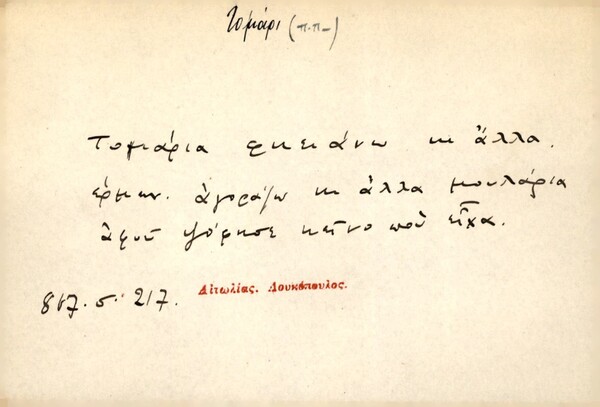 τομάρι (π.π–)
Τομάρια φκειάνω κι ἄλλα.
ἑρμην. ἀγοράζω κι ἄλλα μουλάρια
ἀφοῦ ψόφησε κεῖνο ποὺ εἶχα.
817. σ. 217. Αἰτωλίας. Λουκόπουλος.